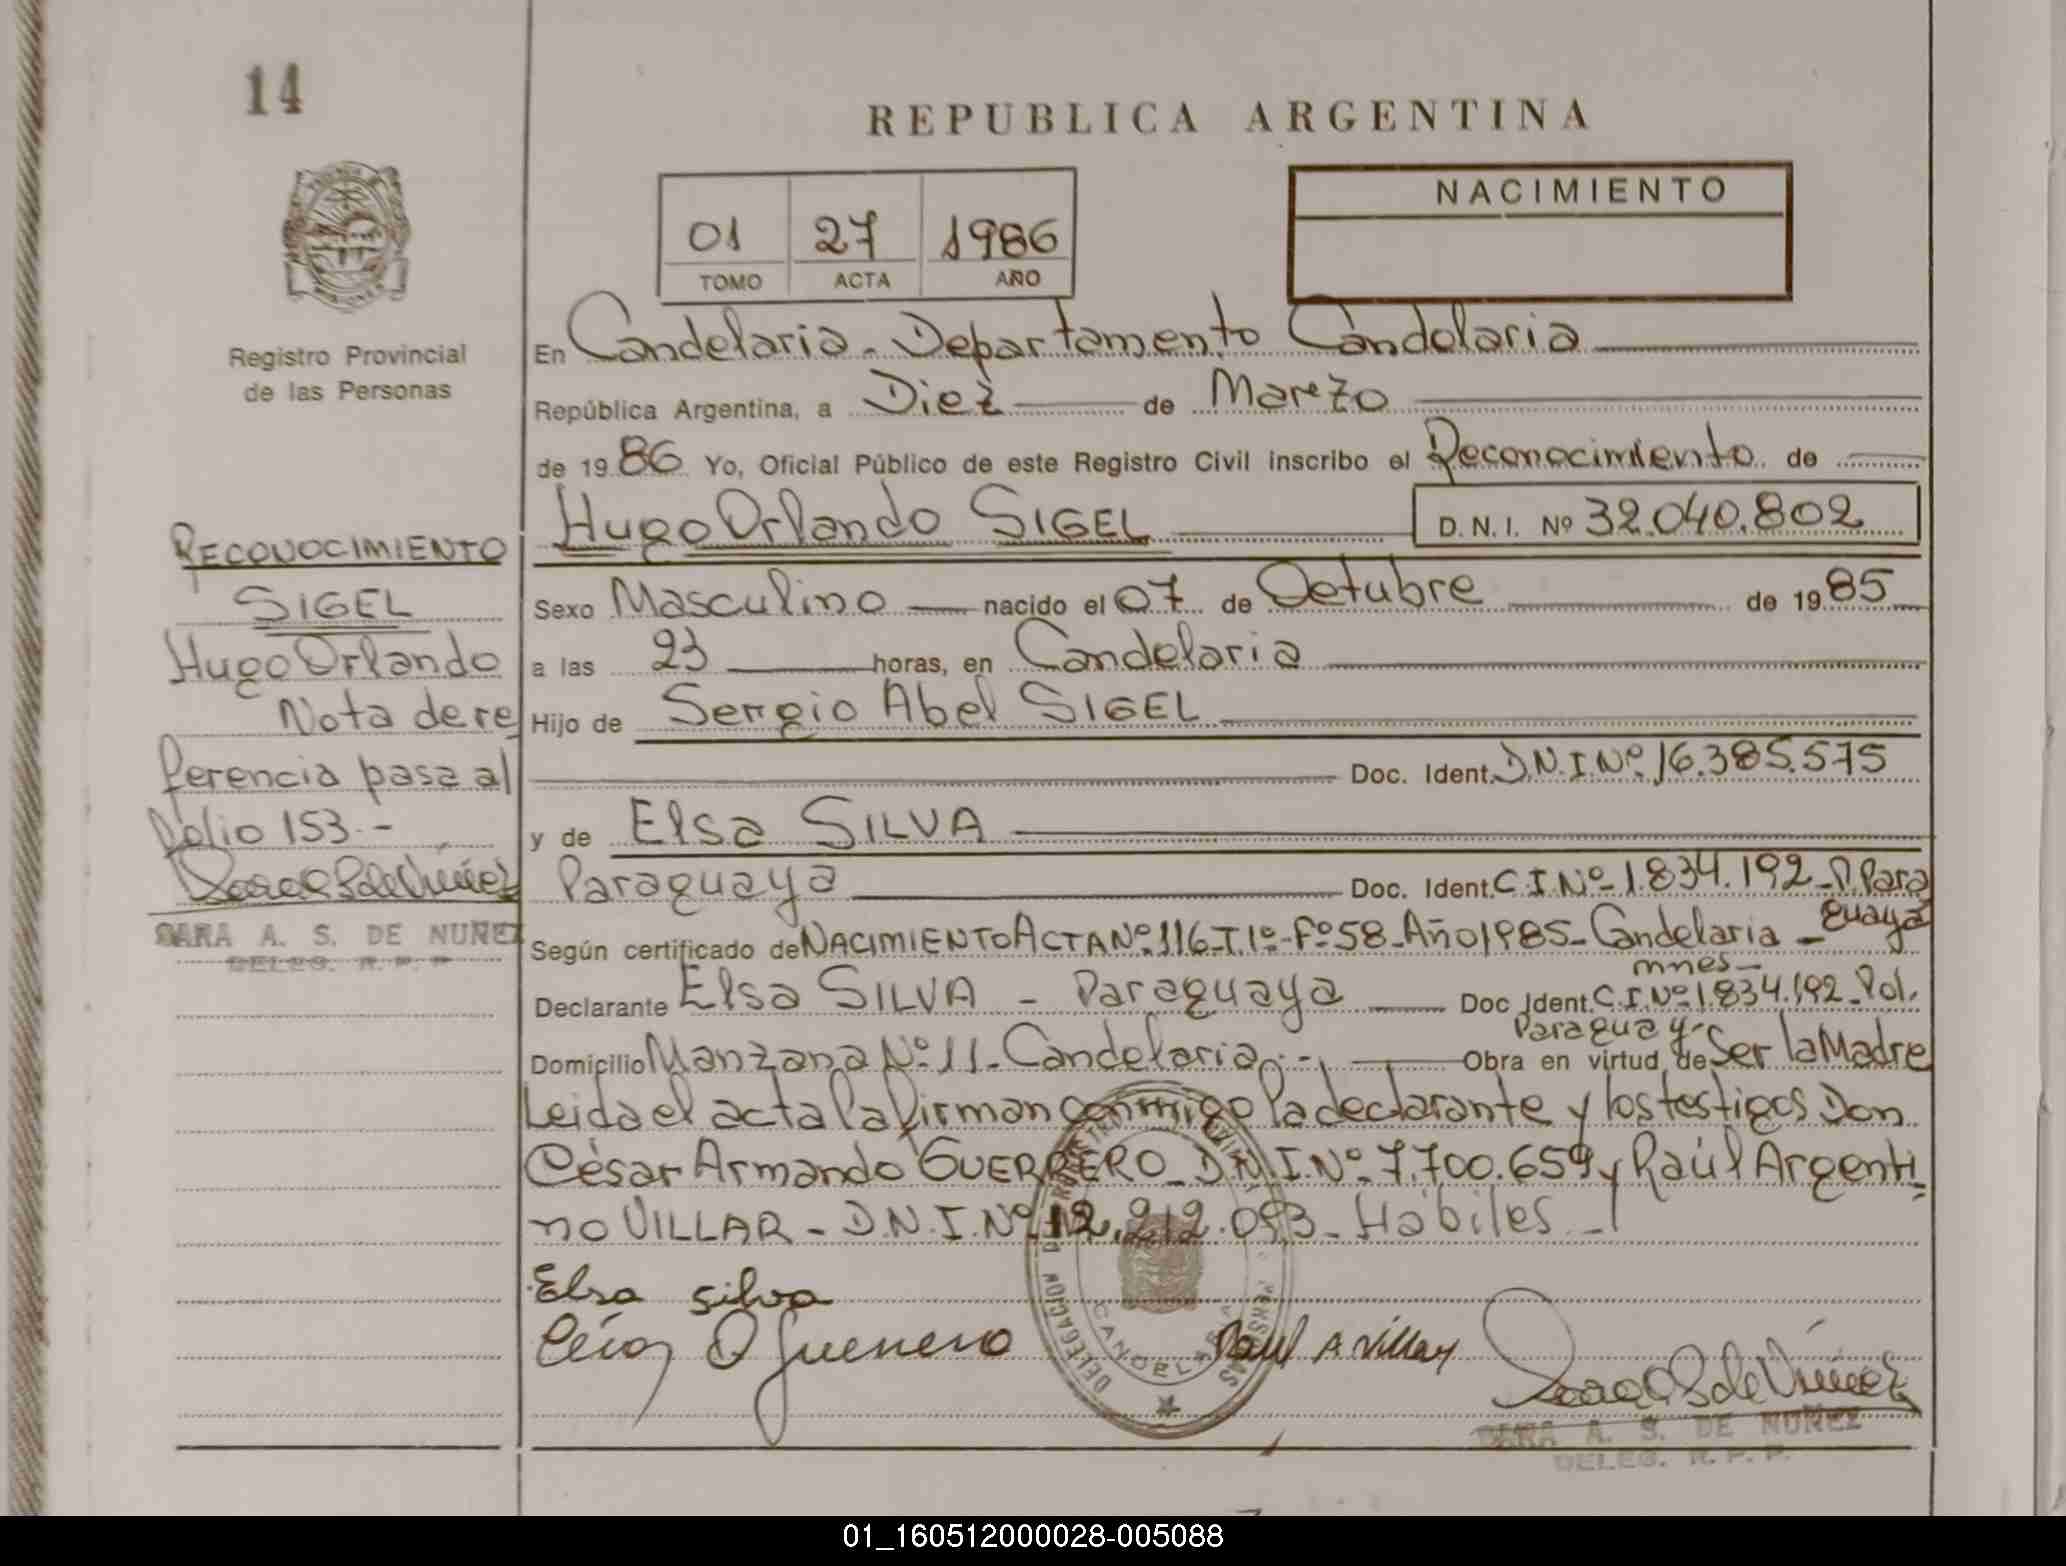 14
REPUBLICA ARGENTINA
NACIMIENTO
01 27 1986
TOMO ACTA AÑO
Registro Provincial
de las Personas
En Candelaria - Departamento Candelaria
República Argentina, a Diez de Marzo
de 19 86 Yo, Oficial Público de este Registro Civil inscribo el Reconocimiento de
Hugo Orlando SIGEL D. N. I. Nº 32.040.802
Sexo Masculino nacido el 07 de Octubre de 19 85
a las 23 horas, en Candelaria
Hijo de Sergio Abel SIGEL
Doc. Ident. D.N.I.Nº. 16.385.575
y de Elsa SILVA
Paraguaya Doc. Ident. C.I.Nº- 1.834.192-P. Para
guaya
Según certificado de NACIMIENTO ACTA Nº 116-T.1º-Fº 58-Año 1985- Candelaria -
mnes-
Declarante Elsa SILVA - Paraguaya Doc Ident. C.I.Nº 1.834.192-Pol.
Paraguay-
Domicilio Manzana Nº 11- Candelaria.-. Obra en virtud de Ser la Madre
Leida el acta la firman conmigo la declarante y los testigos Don
César Armando GUERRERO - D.N.I.Nº. 7.700.659 y Raúl Argenti
no VILLAR - D.N.I.Nº 12.212.093 - Hábiles -
Elsa silva
Raul A. Villar
SARA A. S. DE NUÑEZ
DELEG. R. P. P.
RECONOCIMIENTO
SIGEL
Hugo Orlando
Nota de re
ferencia pasa al
folio 153.-
SARA A. S. DE NUÑEZ
DELEG. R. P. P
DELEGACION DEL REGISTRO PROVINCIAL DE LAS PERSONAS
CANDELARIA
01_160512000028-005088